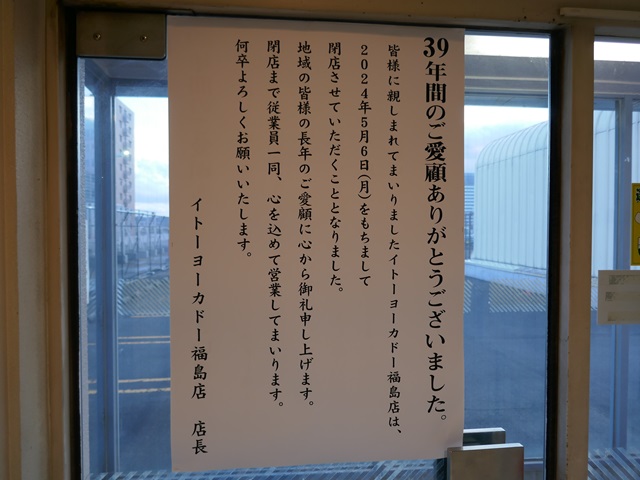 39年間のご愛顧ありがとうございました。
皆様に親しまれてまいりましたイトーヨーカドー福島店は、
2024年5月6日(月)をもちまして
閉店させていただくこととなりました。
地域の皆様の長年のご愛顧に心から御礼申し上げます。
閉店まで従業員一同、心を込めて営業してまいります。
何卒よろしくお願いいたします。
イトーヨーカドー福島店　店長